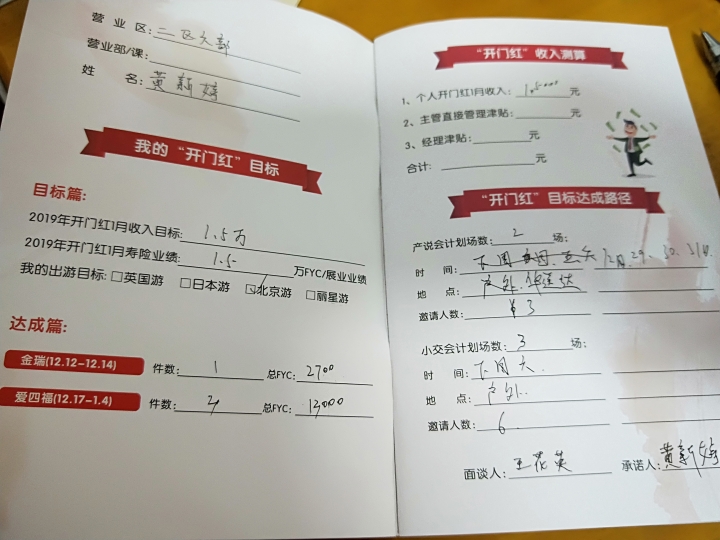 营 业 区: 二区大部
营业部/课:
姓 名: 黄新婷
我的“开门红”目标
目标篇:
2019年开门红1月收入目标: 1.5万
2019年开门红1月寿险业绩: 1.5 万FYC/展业业绩
我的出游目标: □英国游 □日本游 ☑北京游 □丽星游
达成篇:
金瑞(12.12-12.14) 件数: 1 总FYC: 2700
爱四福(12.17-1.4) 件数: 总FYC: 13000
“开门红”收入测算
1、个人开门红1月收入: 15000 元
2、主管直接管理津贴: 元
3、经理津贴: 元
合计: 元
“开门红”目标达成路径
产说会计划场数: 2 场:
时 间: 下周 12月29.30.31日
地 点:
邀请人数: 3
小交会计划场数: 3 场:
时 间: 下周六.
地 点:
邀请人数: 6
面谈人: 王花英 承诺人: 黄新婷